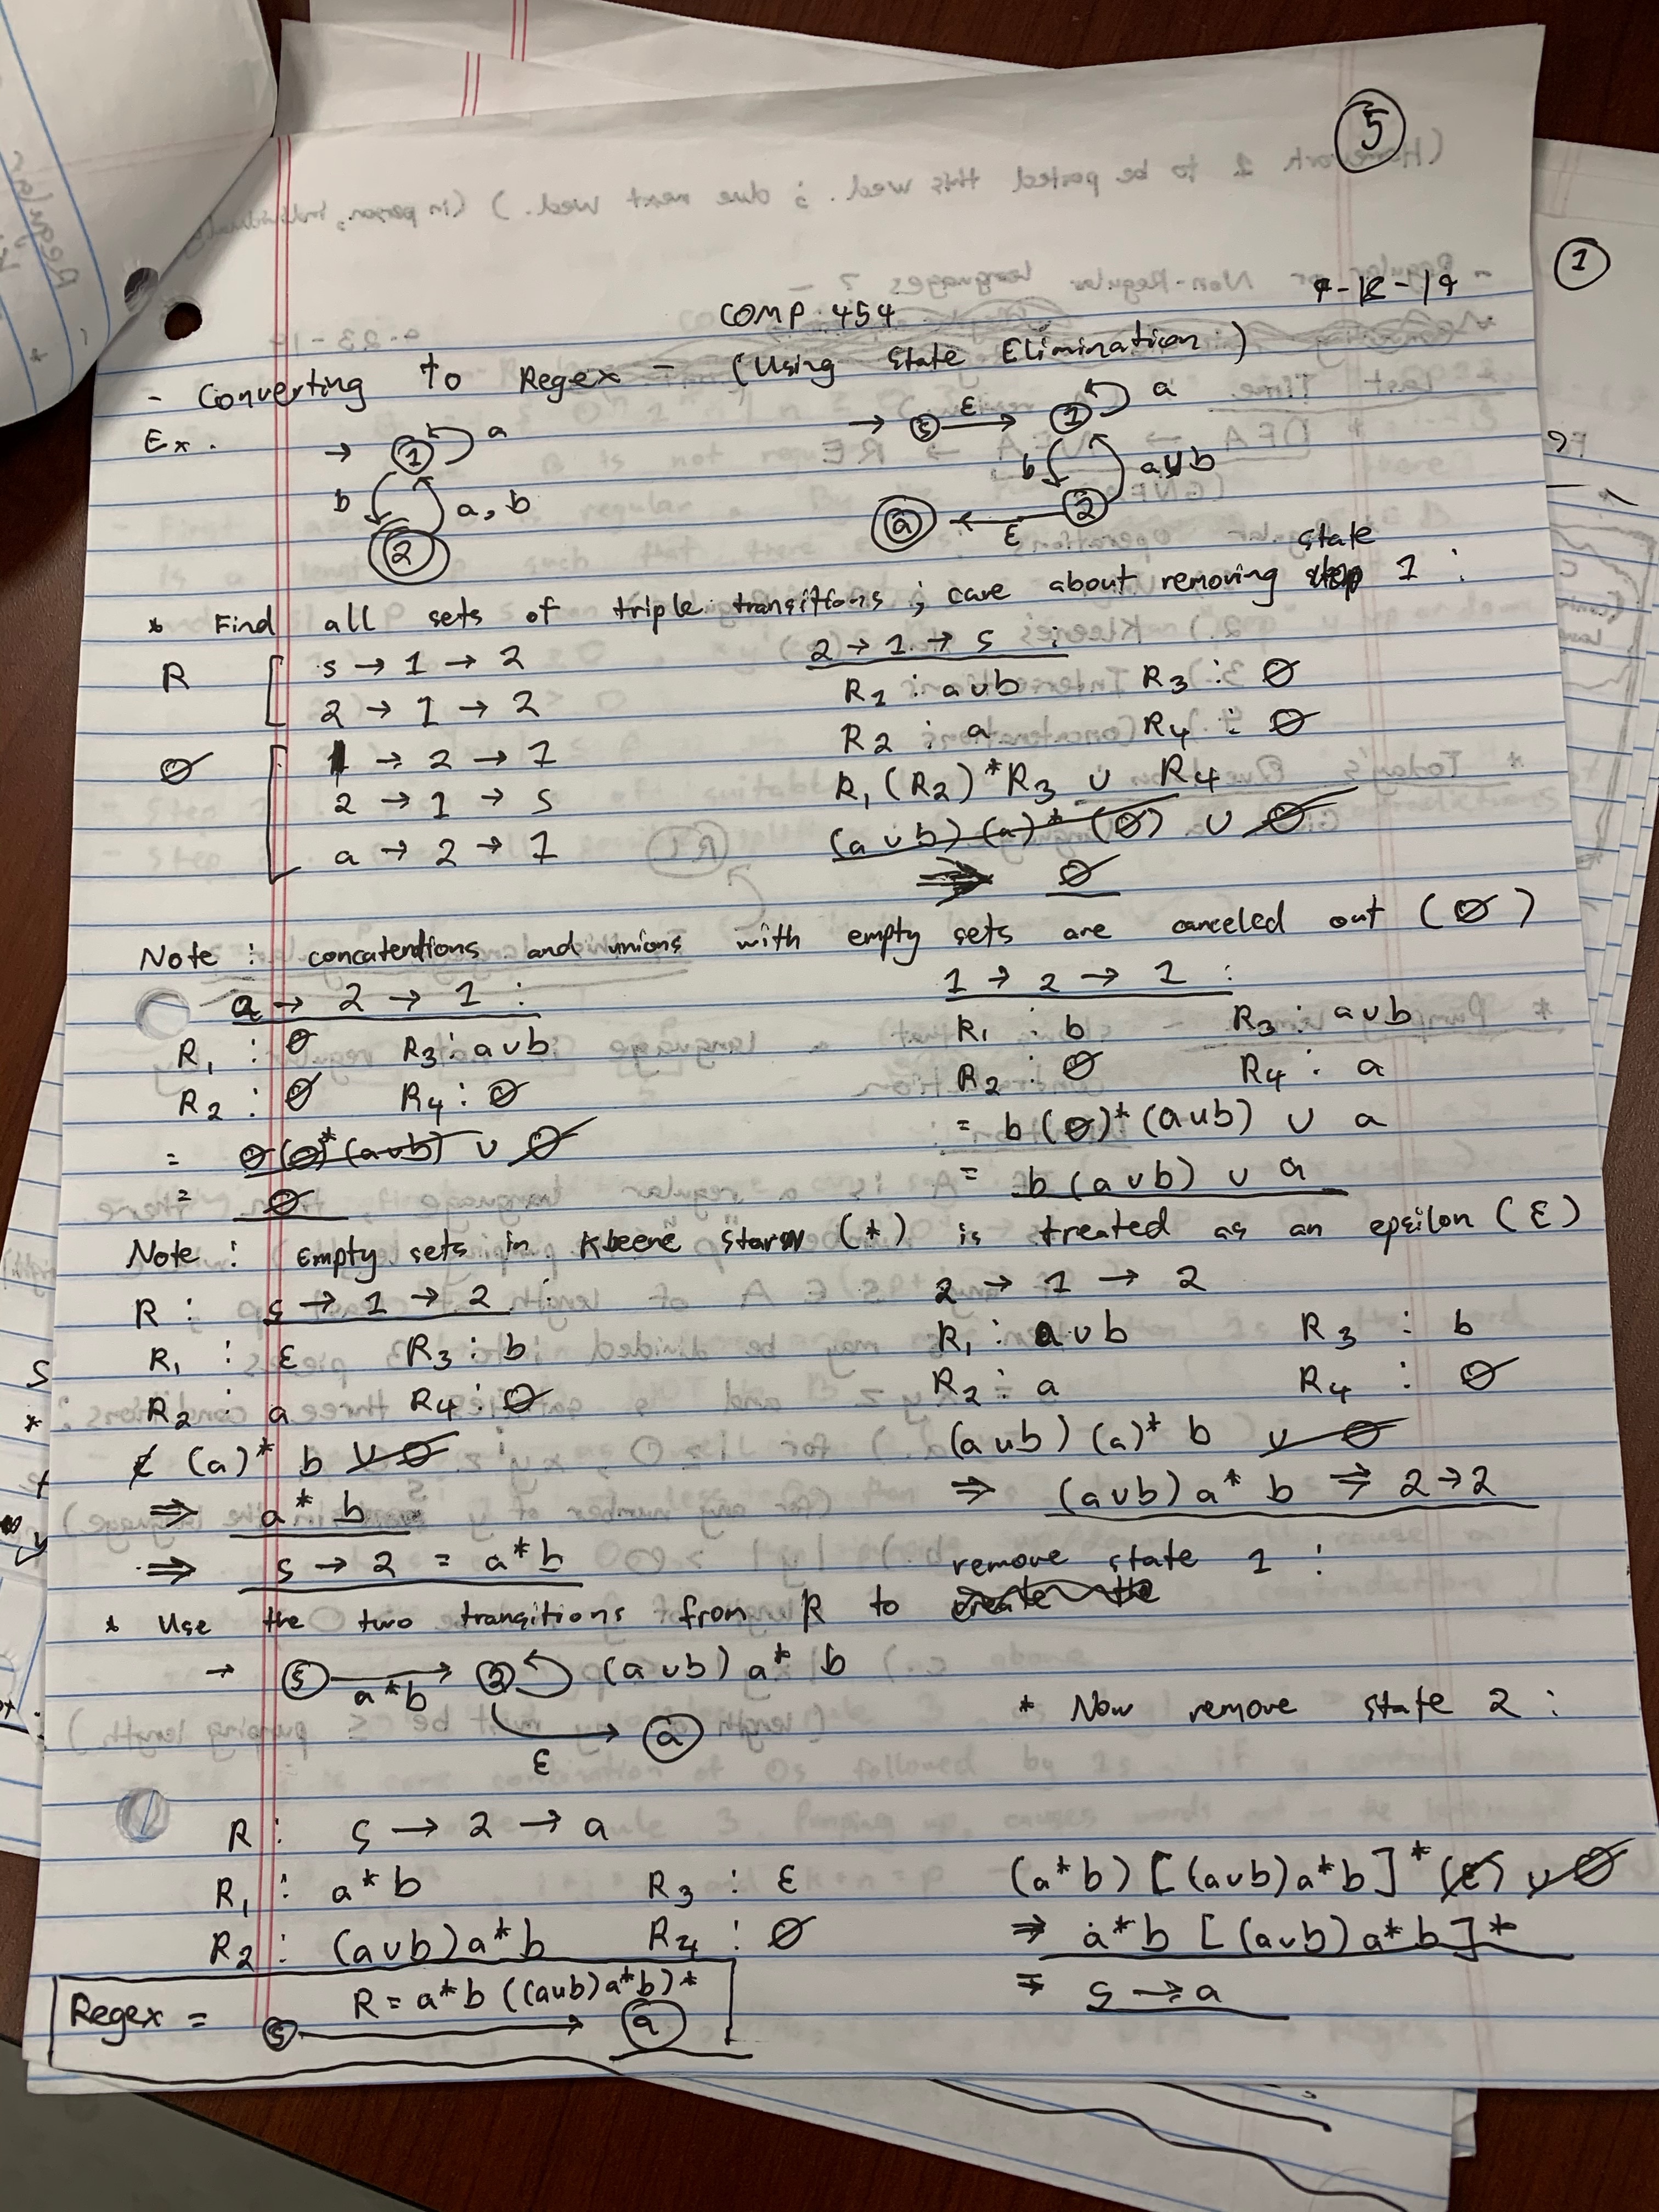 5
1
COMP 454
- Converting to Regex - (Using State Elimination)
Ex.
→ 1 a
b a, b
2
→ s ε → 1 a
b a∪b
a ← ε 2
state
* Find all sets of triple transitions ; care about removing 1 :
R [ s → 1 → 2
2 → 1 → 2
∅ [ 1 → 2 → 1
2 → 1 → s
a → 2 → 1
2 → 1 → s :
R1 : a∪b R3 : ∅
R2 : a R4 : ∅
R1 (R2)* R3 ∪ R4
(a∪b) (a)* (∅) ∪ ∅
⇒ ∅
Note : concatentions and unions with empty sets are canceled out (∅)
a → 2 → 1 :
R1 : ∅ R3 : a∪b
R2 : ∅ R4 : ∅
= ∅(∅)*(a∪b) ∪ ∅
= ∅
1 → 2 → 1 :
R1 : b R3 : a∪b
R2 : ∅ R4 : a
= b (∅)* (a∪b) ∪ a
= b (a∪b) ∪ a
Note : Empty sets in Kleene star (*) is treated as an epsilon (ε)
R : s → 1 → 2 :
R1 : ε R3 : b
R2 : a R4 : ∅
ε (a)* b ∪ ∅
⇒ a* b
⇒ s → 2 = a*b
2 → 1 → 2
R1 : a∪b R3 : b
R2 : a R4 : ∅
(a∪b) (a)* b ∪ ∅
⇒ (a∪b) a* b ⇒ 2→2
remove state 1 :
* Use the two transitions from R to create the
→ s → 2 (a∪b) a* b
a*b
ε a
* Now remove state 2 :
R : s → 2 → a
R1 : a*b R3 : ε
R2 : (a∪b)a*b R4 : ∅
(a*b) [(a∪b)a*b]* (ε) ∪ ∅
⇒ a*b [(a∪b) a*b]*
⇒ s → a
Regex = R = a*b ((a∪b)a*b)*
s → a